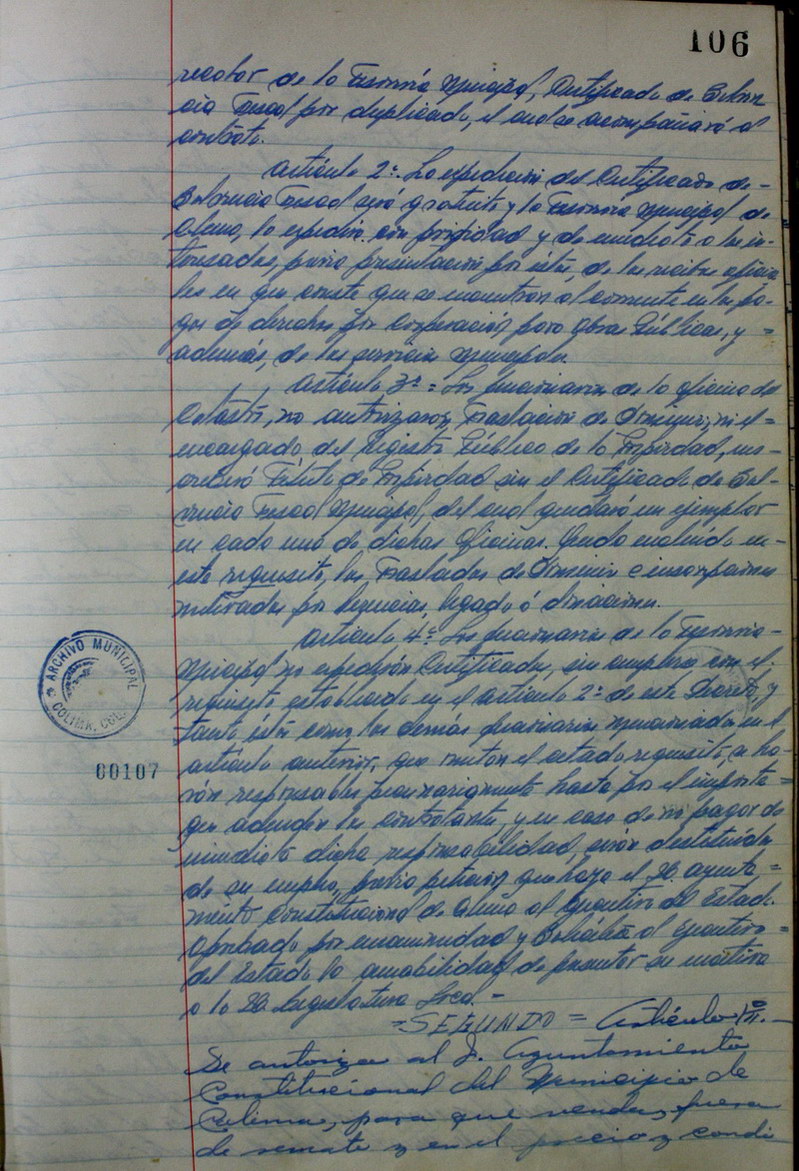 106
recabar de la Tesorería Municipal, Certificado de Solven
cia Fiscal por duplicado, el cual se acompañará al
contrato.
Artículo 2º.- La expedición del Certificado de -
Solvencia Fiscal será gratuita y la Tesorería Municipal de
Colima, lo expedirá con prontitud y de inmediato a los in-
teresados, previa presentación por éstos, de los recibos oficia
les en que conste que se encuentran al corriente en los pa-
gos de derechos por Cooperación para Obras Públicas, y =
además, de los servicios Municipales.
Artículo 3º.- Los funcionarios de la oficina de
Catastro, no autorizarán Traslación de Dominio, ni el =
encargado del Registro Público de la Propiedad, ins-
cribirá Título de Propiedad sin el Certificado de Sol-
vencia Fiscal Municipal, del cual quedará un ejemplar
en cada una de dichas Oficinas. Quedan excluídos en
este requisito, los Traslados de Dominio e inscripciones
motivadas por herencias, legado ó donaciones.
Artículo 4º.- Los funcionarios de la Tesorería -
Municipal no expedirán Certificados, sin cumplirse con el
requisito establecido en el artículo 2º de este Decreto, y
tanto éstos como los demás funcionarios mencionados en el
artículo anterior, que omitan el citado requisito, se ha-
rán responsables pecuniariamente hasta por el importe =
que adeuden los contratantes, y en caso de no pagar de
inmediato dicha responsabilidad, serán destituídos
de su empleo, previa petición que haga el H. Ayunta =
miento Constitucional de Colima al Ejecutivo del Estado.
Aprobado por unanimidad y Solicítese al Ejecutivo =
del Estado la amabilidad de presentar su iniciativa
a la H. Legislatura Local. =
= SEGUNDO = Artículo 1º.-
Se autoriza al H. Ayuntamiento
Constitucional del Municipio de
Colima, para que venda, fuera
de remate y en el precio y condi
ARCHIVO MUNICIPAL
COLIMA, COL.
00107